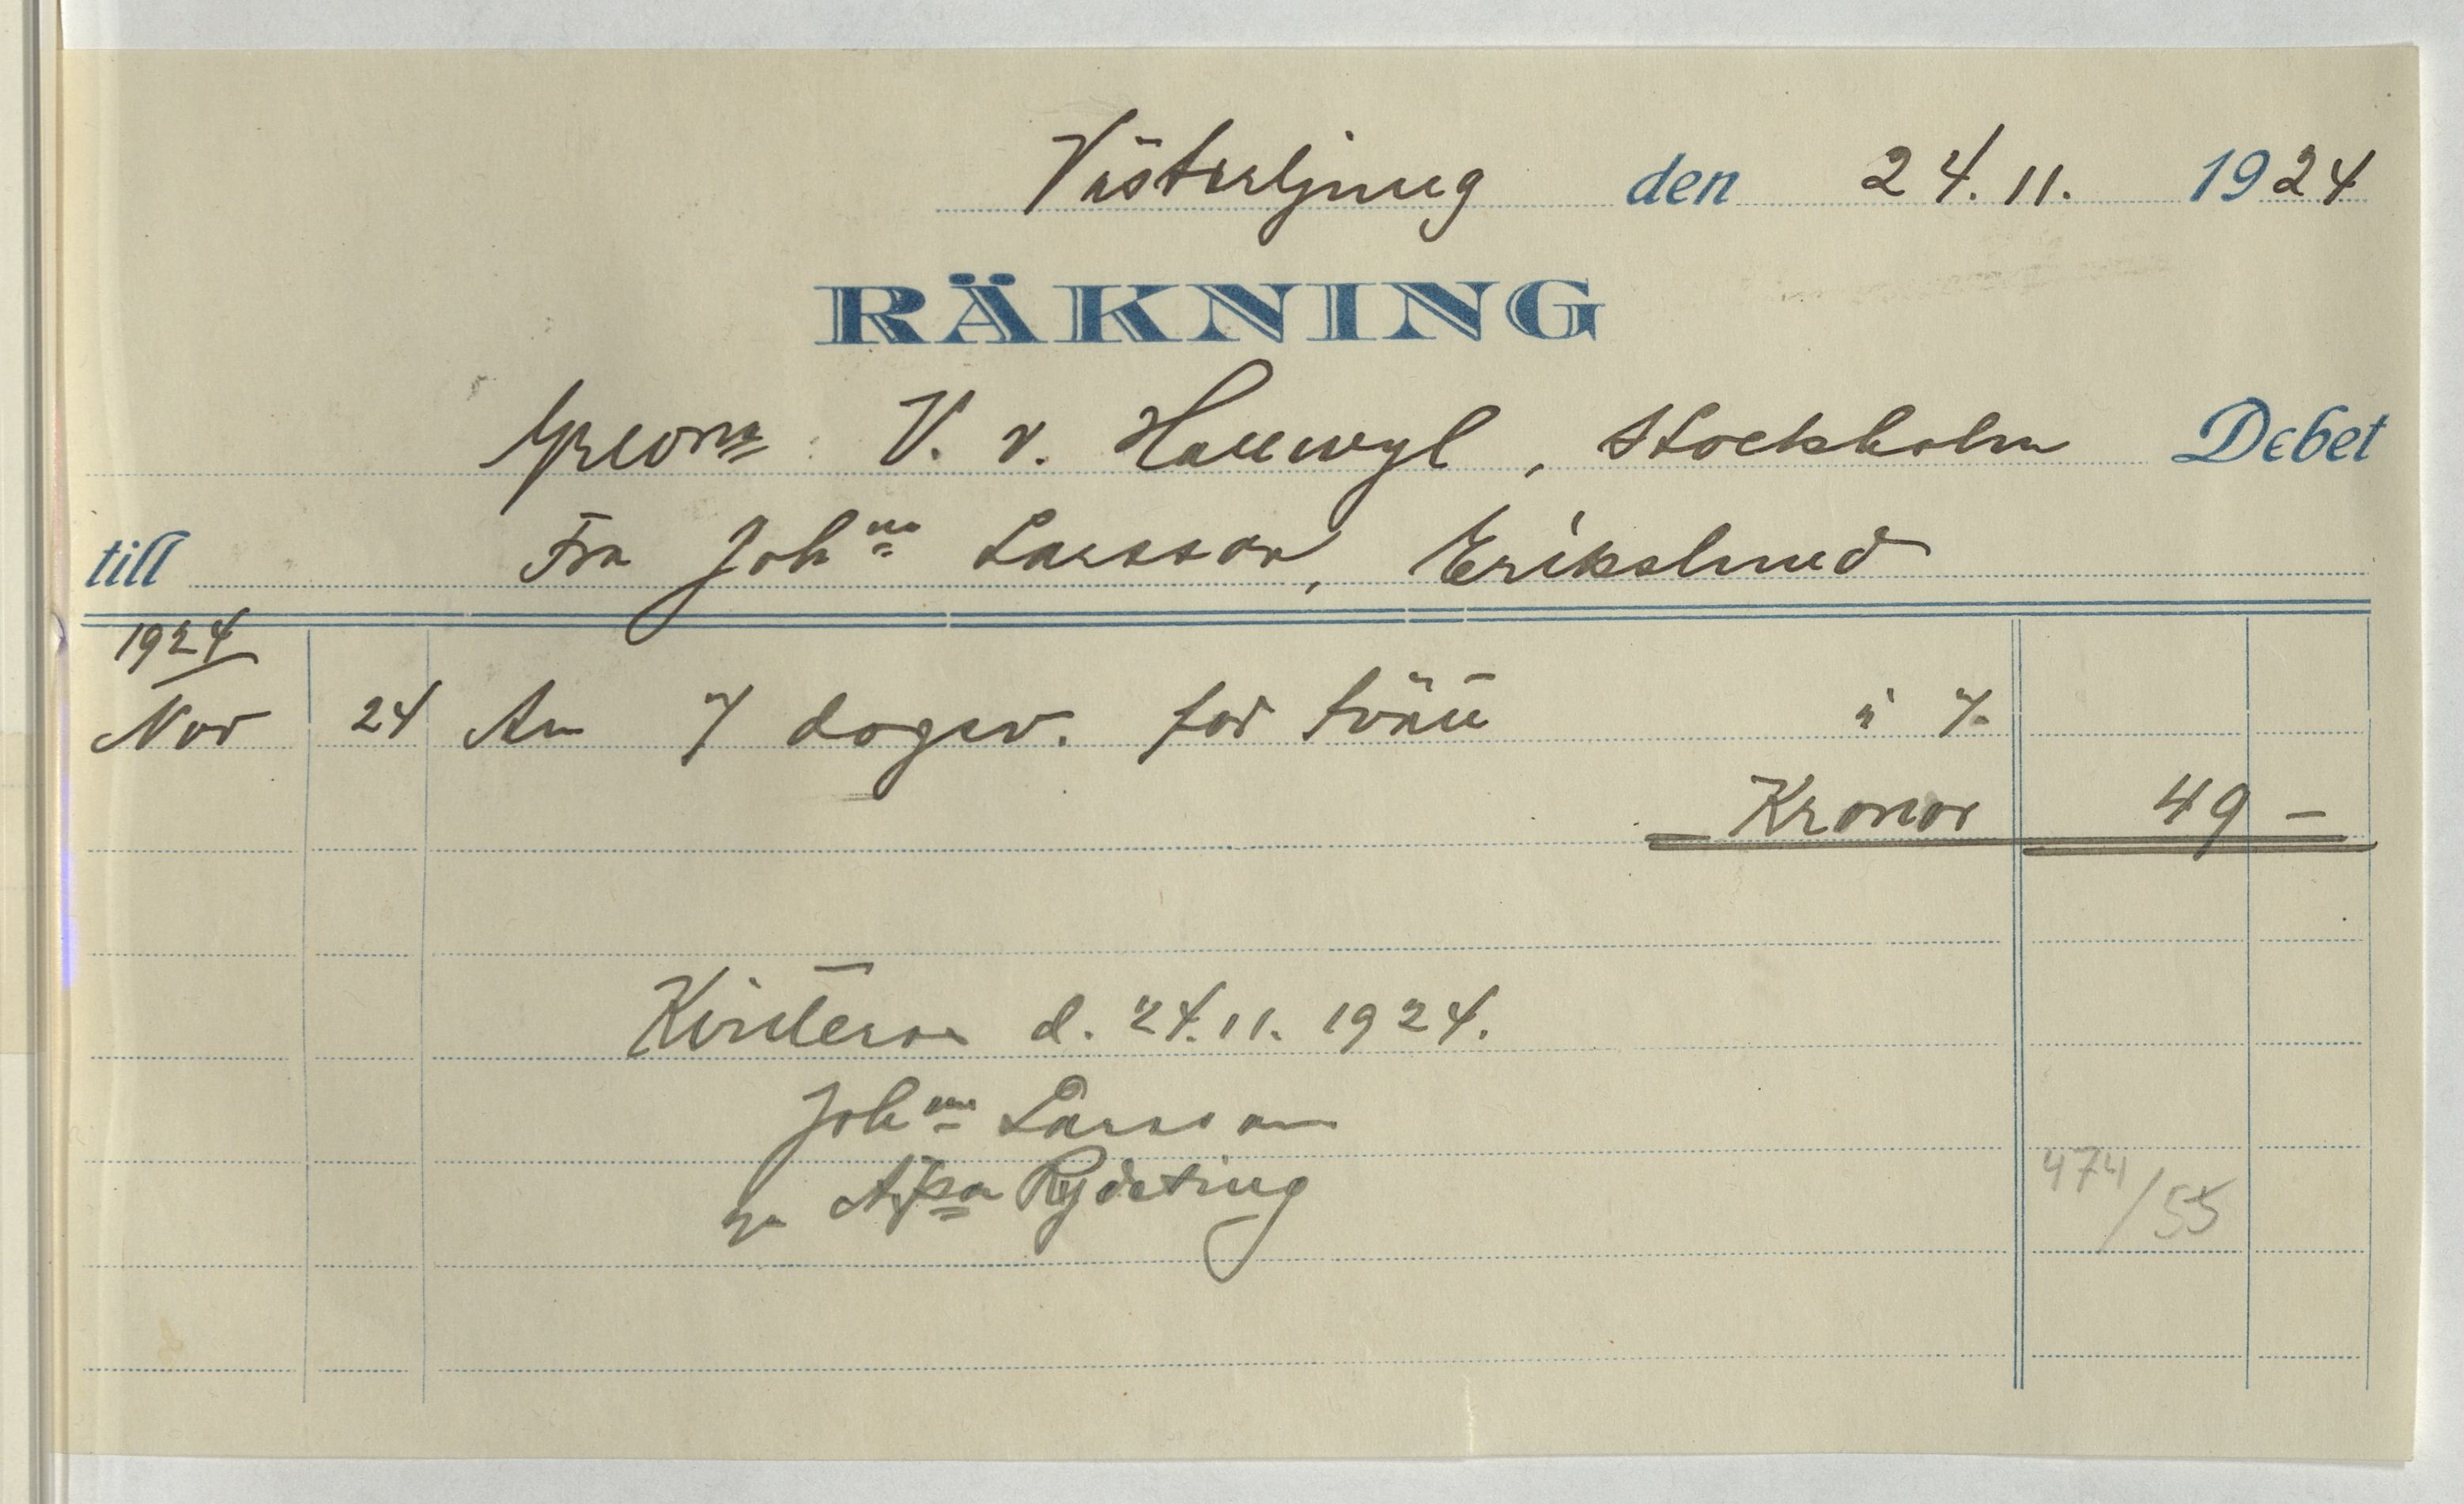 Västerljung den 24.11. 1924
RÄKNING
V. v. Hallwyl, Stockholm Debet
till Fru Joh:na Larsson, Erikslund
1924
Nov 24 An 7 dagsv. för tvätt à 7.-
Kronor 49 -
Kvitteras d. 24.11. 1924.
Joh:na Larsson
Rydeting
474/55